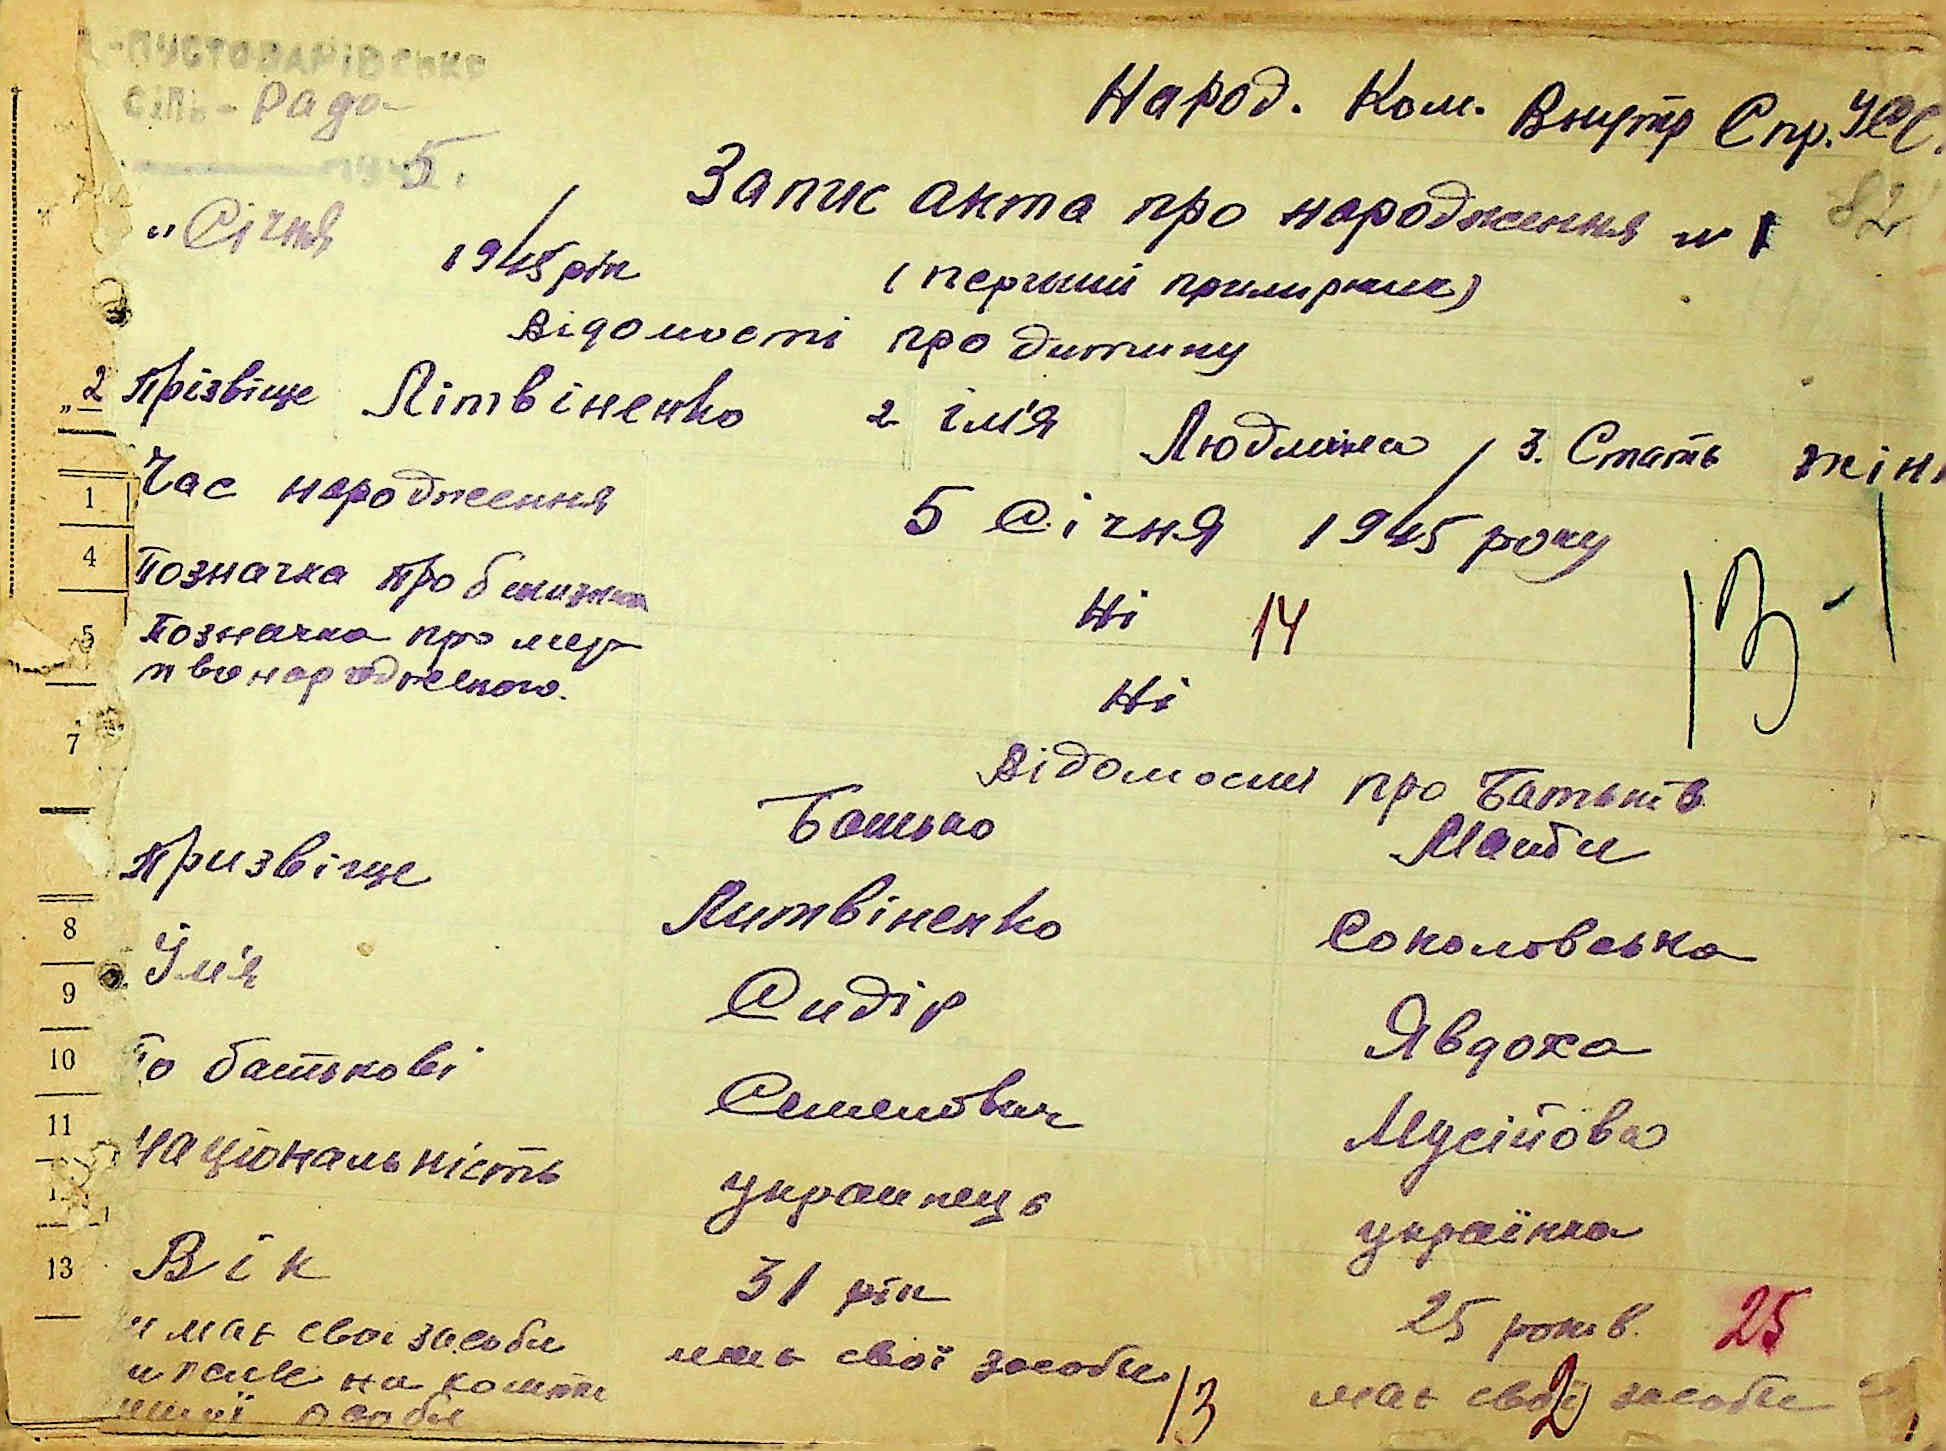 -ПУСТОВАРІВСЬКЕ
Сіль-Рада
5.
Народ. Ком. Внутр Спр. УСС.
82
Запис акта про народження № 1
„ Січня
1945 рік
( перший примірник)
Відомості про дитину
„2 Прізвіще Літвіненко 2 ім'я Людмила 3. Стать жін
1 Час народження 5 Січня 1945 року
4 Позначка про близнят Ні 14
13-1
5 Позначка про мер
твонародженого. Ні
7
Відомості про батьків
Батько Мати
Призвіще Литвіненко Соколовська
8
Їм'я Сидір Явдоха
9
10 По батькові Семенович Мусійова
11 Національність украинець українка
13 Вік 31 рік 25 років. 25
чи має свої засоби має свої засоби має свої засоби
чи на кошти
иншої особи
13 2